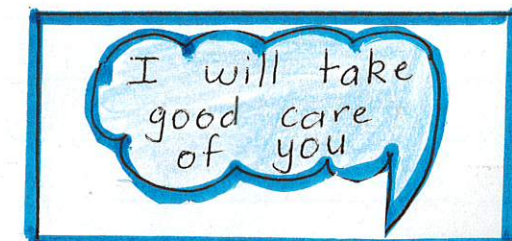 I will take
good care
of you